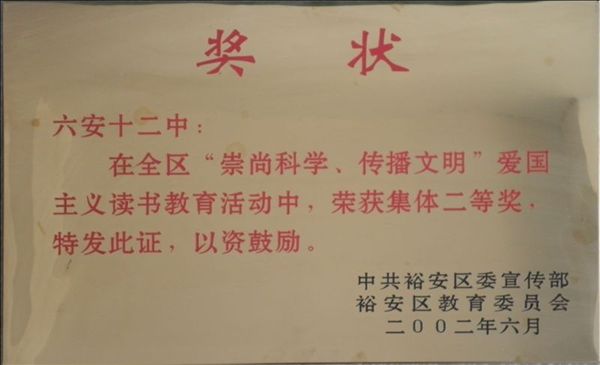 奖 状
六安十二中：
在全区“崇尚科学、传播文明”爱国
主义读书教育活动中，荣获集体二等奖，
特发此证，以资鼓励。
中共裕安区委宣传部
裕安区教育委员会
二〇〇二年六月